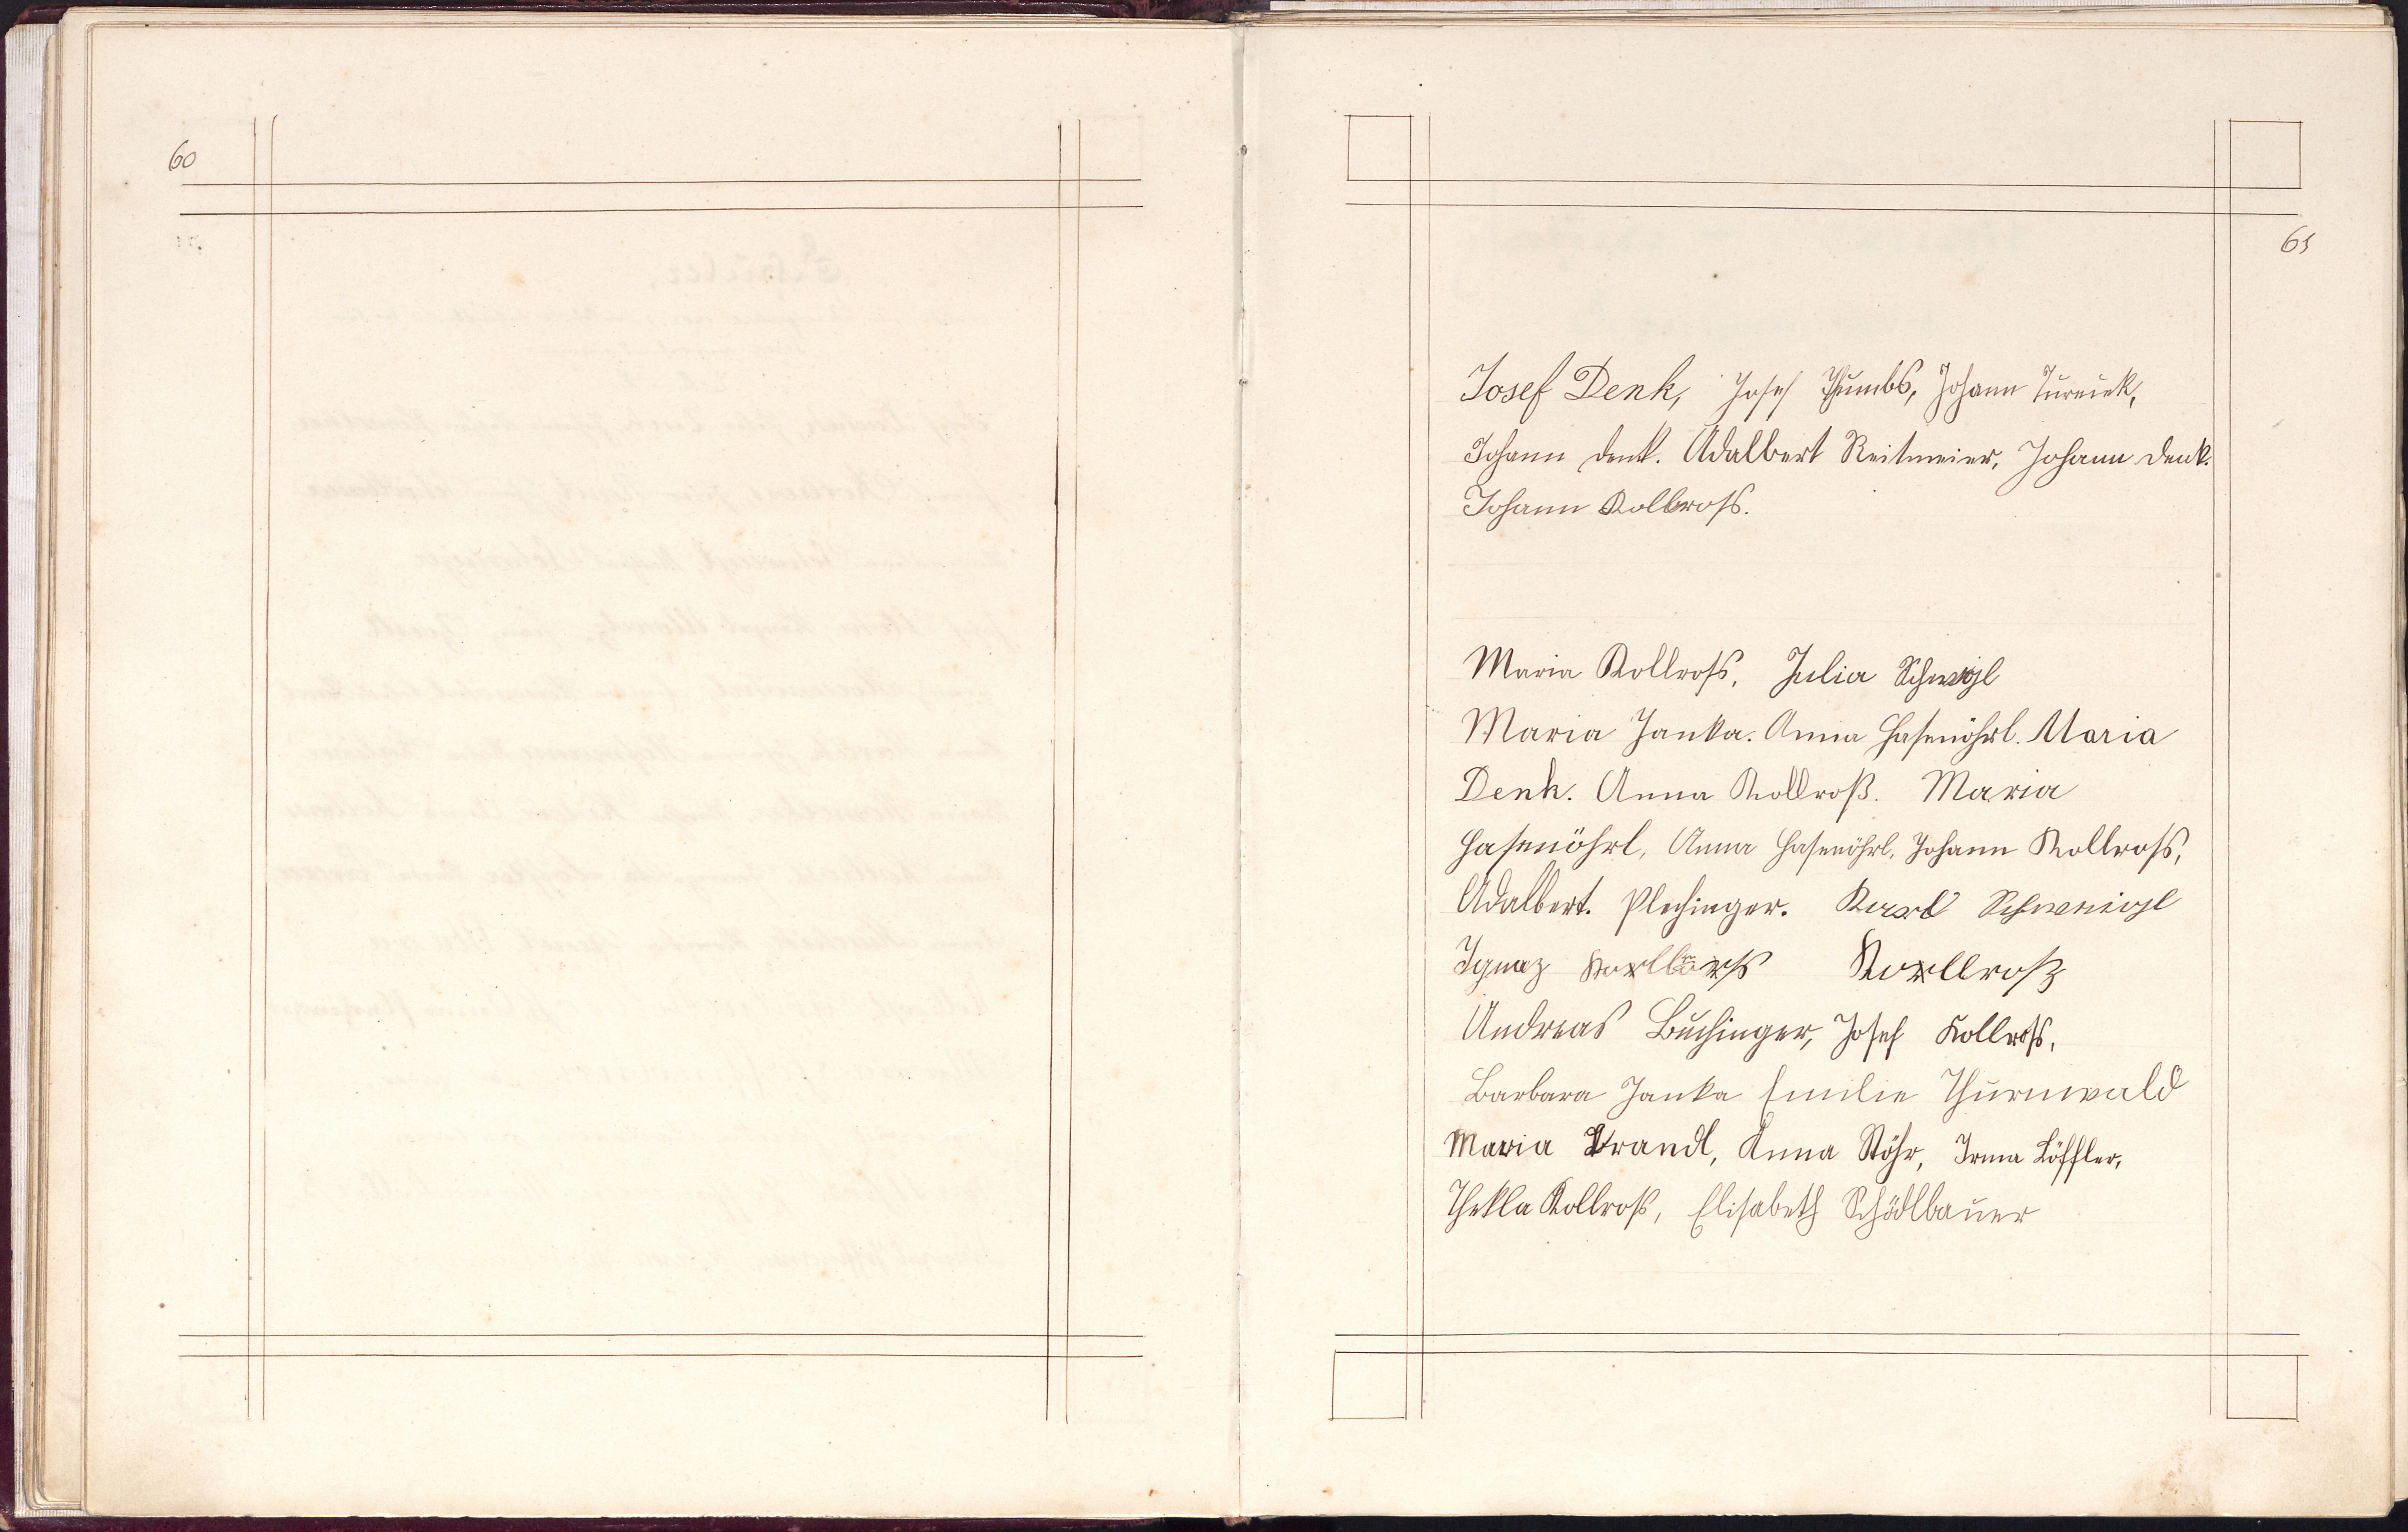 60
61
Josef Denk, Josef Thumbs, Johann Turnick,
Johann Denk. Adalbert Reitmeier, Johann Denk.
Johann Kollross.
Maria Kollross, Julia Schweigl
Maria Janka. Anna Hasenöhrl. Maria
Denk. Anna Kollroß. Maria
Hasenöhrl, Anna Hasenöhrl, Johann Kollross,
Adalbert. Plechinger. Karl Schweigl
Ignaz Kollross
Andreas Buchinger, Josef Kollross,
Barbara Janka Emilie Thurnwald
Maria Brandl, Anna Stöhr, Irma Löffler,
Thekla Kollross, Elisabeth Schödlbauer